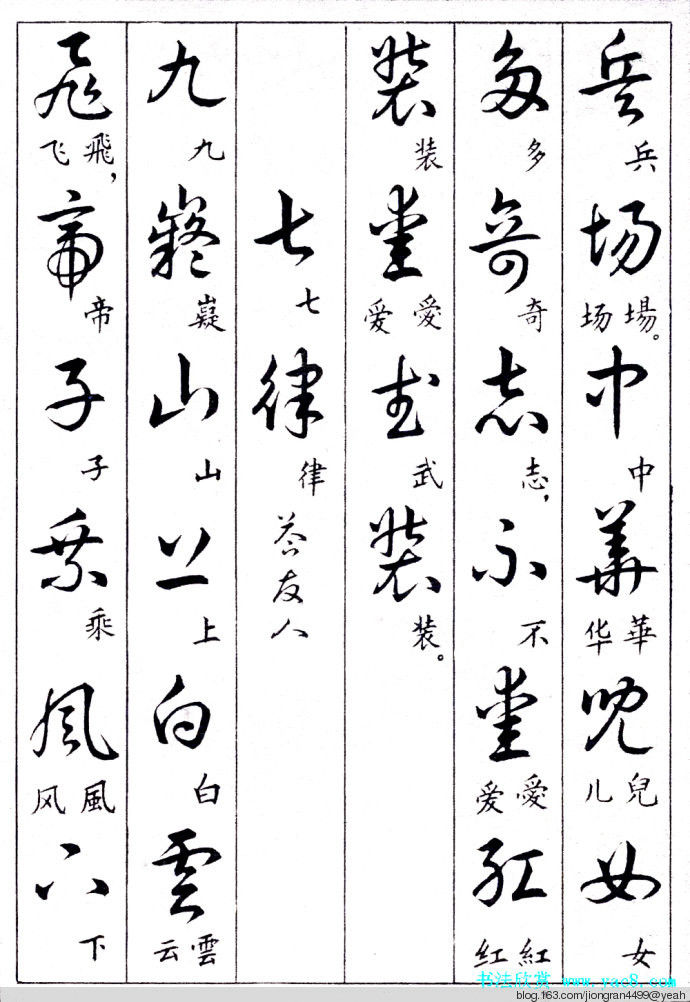 兵 兵 場 場。场 中 中 華 華华 兒 兒儿 女 女
多 多 奇 奇 志 志， 不 不 愛 愛爱 紅 紅红
装 装 愛 愛爱 武 武 装 装。
七 七 律 律 答友人
九 九 嶷 嶷 山 山 上 上 白 白 雲 雲云
飛 飛，飞 帝 帝 子 子 乘 乘 風 風风 下 下
书法欣赏 www.yac8.com
blog.163.com/jiongran4499@yeah